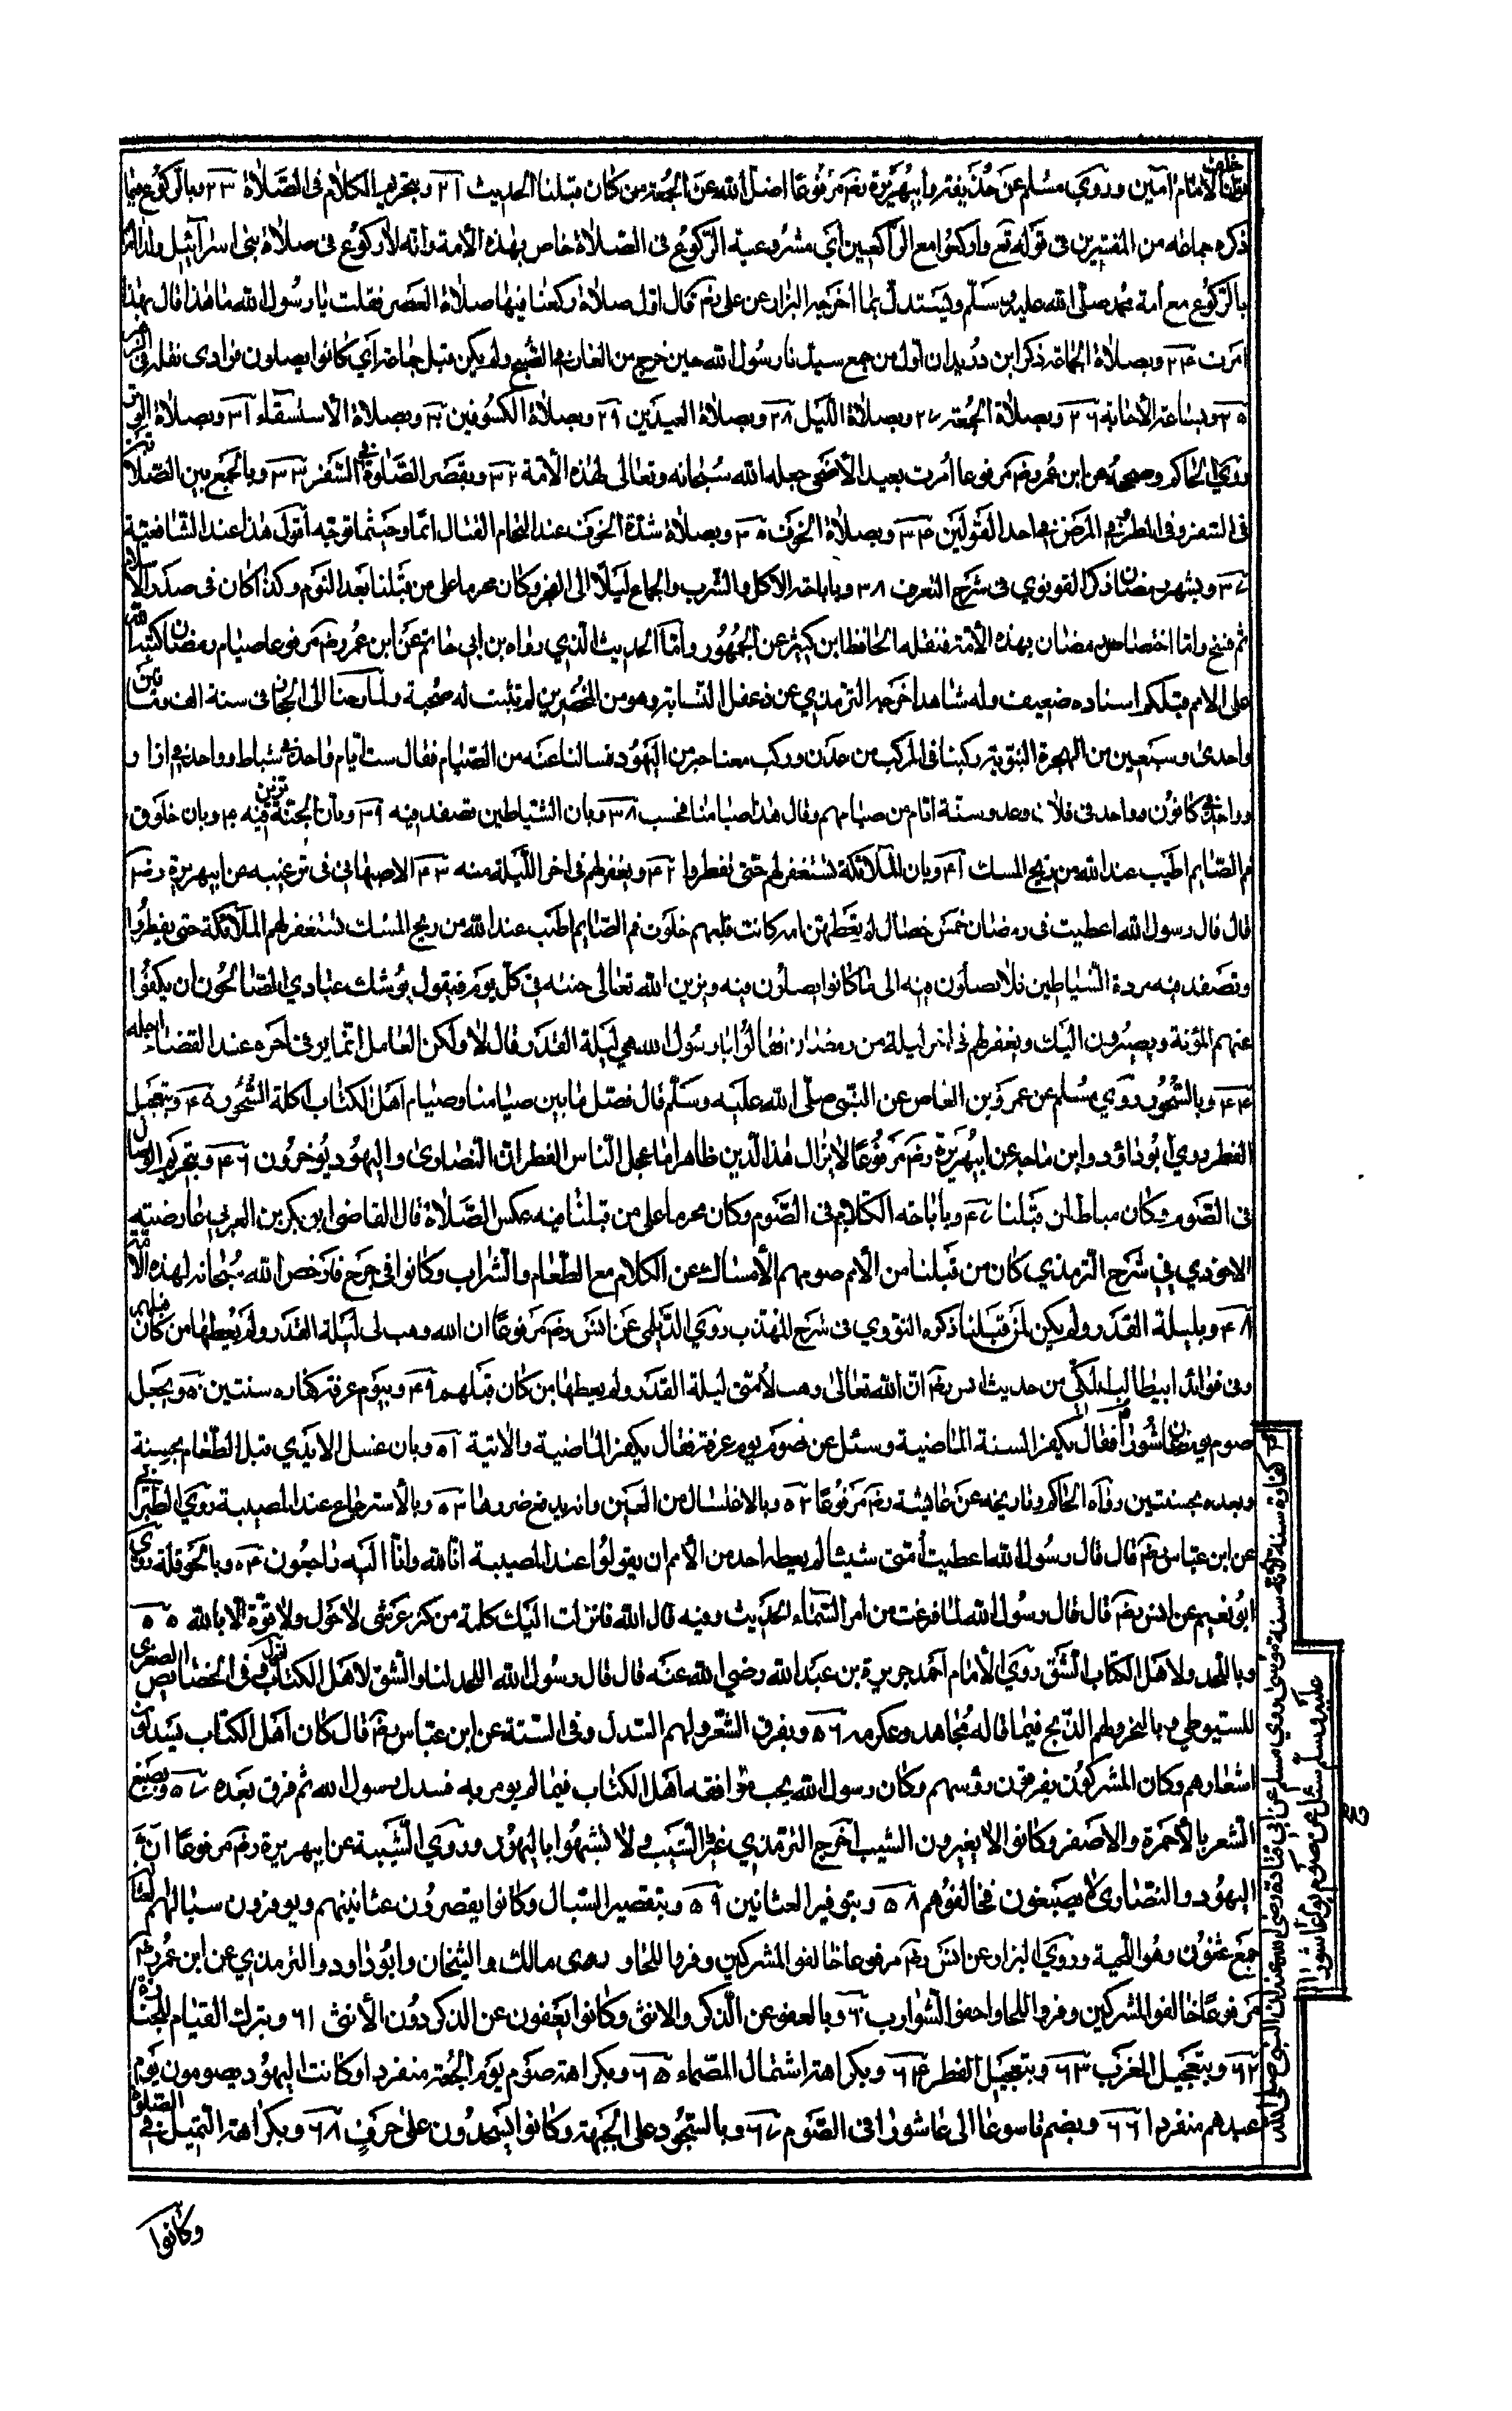 خلف الامام آمين وروي مسلم عن حذيفة وابيهريرة رضم مرفوعا اضل الله عن الجمعة من كان قبلنا الحديث ٢١ وبتحريم الكلام في الصلاة ٢٣ وبالركوع فيما
ذكره جماعة من المفسرين في قوله تع واركعوا مع الراكعين اي مشروعية الركوع في الصلاة خاص بهذه الأمة وانه لا ركوع في صلاة بني اسرآئيل ولذا امر
بالركوع مع امة محمد صلى الله عليه وسلم ويستدل بما اخرجه البزار عن علي رضم قال اول صلاة ركعنا فيها صلاة العصر فقلت يا رسول الله ما هذا قال بهذا
امرت ٢٤ وبصلاة الجماعة ذكر ابن دريد ان اول من جمع سيدنا رسول الله حين خرج من الغار الصبح ولم يكن قبل جماعة اي كانوا يصلون فرادى نقله في
٢٥ وبساعة الاجابة ٢٦ وبصلاة الجمعة ٢٧ وبصلاة الليل ٢٨ وبصلاة العيدين ٢٩ وبصلاة الكسوفين ٣٠ وبصلاة الاستسقاء ٣١ وبصلاة الوتر
وروي الحاكم وصححه عن ابن عمرو رضم مرفوعا امرت بعيد الاضحى جعله الله سبحانه وتعالى لهذه الأمة ٣٢ وبقصر الصلوة في السفر ٣٣ وبالجمع بين الصلا
في السفر وفي المطر وفي المرض في احد القولين ٣٤ وبصلاة الخوف ٣٥ وبصلاة شدة الخوف عند التحام القتال انما وحيثما توجه اقول هذا عند الشافعية
٣٧ وبشهر رمضان ذكر القونوي في شرح التعرف ٣٨ وباباحة الاكل والشرب والجماع ليلا الى الفجر وكان محرما على من قبلنا بعد النوم وكذا كان في صدر الاسلام
ثم نسخ واما اختصاص رمضان بهذه الأمة فنقله الحافظ ابن كثير عن الجمهور واما الحديث الذي رواه بن ابي حاتم عن ابن عمر رضم مرفوعا صيام رمضان كتبه الله
على الامم قبلكم اسناده ضعيف وله شاهد اخرجه الترمذي عن دغفل النسابة وهو من المخضرمين لم تثبت له صحبة ولما رحنا الى الحجاز في سنة الف ومأتين
واحدى وسبعين من الهجرة النبوية ركبنا في المركب من عدن وركب معنا حبر من اليهود فسالنا عنه من الصيام فقال ست ايام واحد في شباط وواحد في اذار و
وواحد في كانون وواحد في وعد وستة ايام من صيامهم وقال هذا صيامنا فحسب ٣٨ وبان الشياطين تصفد فيه ٣٩ وبان الجنة تزين فيه ٤٠ وبان خلوق
فم الصايم اطيب عند الله من ريح المسك ٤١ وبان الملائكة تستغفر لهم حتى يفطروا ٤٢ ويغفر لهم في اخر الليلة منه ٤٣ الاصبهاني في ترغيبه عن ابيهريرة رضم
قال قال رسول الله اعطيت في رمضان خمس خصال لم يعطهن امة كانت قبلهم خلوف فم الصايم اطيب عند الله من ريح المسك تستغفر لهم الملائكة حتى يفطروا
وتصفد فيه مردة الشياطين فلا يصلون فيه الى ما كانوا يصلون فيه ويزين الله تعالى جنته في كل يوم فيقول يوشك عبادي الصالحون ان يكفوا
عنهم المؤنة ويصيرون اليك ويغفر لهم في اخر ليلة من رمضان فقالوا يا رسول الله هي ليلة القدر قال لا ولكن العامل انما يوفى اجره عند القضاء اجله
٤٤ وبالسحور روي مسلم عن عمرو بن العاص عن النبي صلى الله عليه وسلم قال فصل ما بين صيامنا وصيام اهل الكتاب اكلة السحور ٤٥ وبتعجيل
الفطر روي ابو داؤد وابن ماجه عن ابيهريرة رضم مرفوعا لا يزال هذا الدين ظاهرا ما عجل الناس الفطر ان النصارى واليهود يؤخرون ٤٦ وبتحريم الوصال
في الصوم وكان مباحا لمن قبلنا ٤٧ وباباحة الكلام في الصوم وكان محرما على من قبلنا فيه عكس الصلاة قال القاضي ابو بكر بن العربي عارضته
الاحوذي في شرح الترمذي كان من قبلنا من الأمم صومهم الأمساك عن الكلام مع الطعام والشراب وكانوا في حرج فارخص الله سبحانه لهذه الأمة
٤٨ وبليلة القدر ولم يكن لمن قبلنا ذكره النووي في شرح المهذب روي الديلمي عن انس رضم مرفوعا ان الله وهب لي ليلة القدر ولم يعطها من كان قبلهم
وفي فوائد من حديث انس رضم ان الله تعالى وهب لأمتي ليلة القدر ولم يعطها من كان قبلهم ٤٩ وبيوم عرفة كفاره سنتين ٥٠ ويجعل
صوم يوم عاشورا فقال يكفر السنة الماضية وسئل عن صوم يوم عرفة فقال يكفر الماضية والاتية ٥١ وبان غسل الايدي قبل الطعام بحسنة
وبعده بحسنتين رواه الحاكم وتاريخه عن عايشة رضم مرفوعا ٥٢ وبالاغتسال من العين وانه يدفع ضررها ٥٣ وبالأسترجاع عند المصيبة روي الطبراني
عن ابن عباس رضم قال قال رسول الله اعطيت أمتي شيئا لم يعطه احد من الأمم ان يقولوا عند المصيبة انا لله وانا اليه راجعون ٥٤ وبالحوقلة روي
ابو نعيم عن انس رضم قال قال رسول الله لما فرغت من امر السماء الحديث وفيه قال الله فانزلت اليك كلمة من كنز عرشي لا حول ولا قوة الا بالله ٥٥
وباللحد ولأهل الكتاب الشق روي الأمام احمد جريرة بن عبد الله رضي الله عنه قال قال رسول الله اللحد لنا والشق لأهل الكتاب وفي الخصايص الصغرى
للسيوطي وبالنحر ولهم الذبح فيما قاله مجاهد وعكرمه ٥٦ وبفرق الشعر ولهم السدل وفي الستة عن ابن عباس رضم قال كان اهل الكتاب يسدلون
اشعارهم وكان المشركون يفرقون رؤسهم وكان رسول الله يحب موافقة اهل الكتاب فيما لم يومر به فسدل رسول الله ثم فرق بعده ٥٧ وبصبغ
الشعر بالأحمرة والأصفر وكانوا لا يغيرون الشيب اخرج الترمذي غيروا الشيب ولا تشبهوا باليهود وروي الشيبة عن ابيهريرة رضم مرفوعا ان
اليهود والنصارى لا يصبغون فخالفوهم ٥٨ وبتوفير العثانين ٥٩ وبتقصير السبال وكانوا يقصرون عثانينهم ويوفرون سبالهم
جمع عثنون وهو اللحية وروي البزار عن انس رضم مرفوعا خالفوا المشركين وفروا اللحا و روى مالك والشيخان وابو داود والترمذي عن ابن عمر رضم
مرفوعا خالفوا المشركين وفروا اللحا واحفوا الشوارب ٦٠ وبالعفو عن الذكر والانثى وكانوا يعفون عن الذكر دون الأنثى ٦١ وبترك القيام للجنازة
٦٢ وبتعجيل المغرب ٦٣ وبتعجيل الفطر ٦٤ وبكراهة اشتمال الصماء ٦٥ وبكراهة صوم يوم الجمعة منفردا وكانت اليهود يصومون يوم
عيدهم منفردا ٦٦ وبضم تاسوعا الى عاشورا في الصوم ٦٧ وبالسجود على الجبهة وكانوا يسجدون على حرف ٦٨ وبكراهة التميل في الصلوة
سنة لانه سنة موسى وروي مسلم عن ابي قتادة رضي الله عنه ان النبي صلى الله
عليه وسلم سئل عن صوم يوم عاشورا
وكانوا